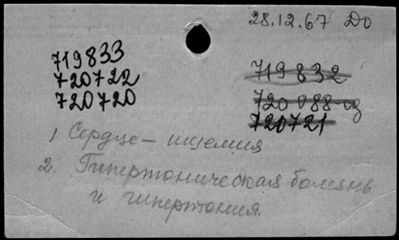 28.12.67 До
719833
720722
720720
719832
720088-из
720721
1) Сердце – ишемия
2. Гипертоническая болезнь
и гипертония.